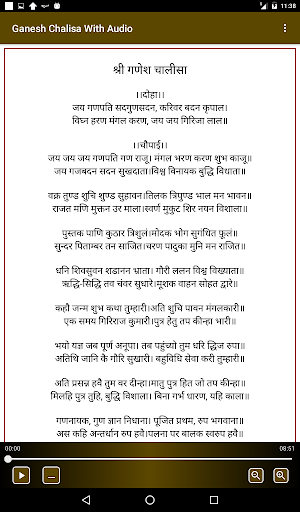 11:38
Ganesh Chalisa With Audio
श्री गणेश चालीसा
।।दोहा।।
जय गणपति सदगुणसदन, करिवर बदन कृपाल।
विघ्न हरण मंगल करण, जय जय गिरिजा लाल॥
।।चौपाई।।
जय जय जय गणपति गण राजू। मंगल भरण करण शुभ काजू॥
जय गजबदन सदन सुखदाता।विश्व विनायक बुद्धि विधाता॥
वक्र तुण्ड शुचि शुण्ड सुहावन।तिलक त्रिपुण्ड भाल मन भावन॥
राजत मणि मुक्तन उर माला।स्वर्ण मुकुट शिर नयन विशाला॥
पुस्तक पाणि कुठार त्रिशुलं।मोदक भोग सुगंधित फूलं॥
सुन्दर पिताम्बर तन साजित।चरण पादुका मुनि मन राजित॥
धनि शिवसुवन षडानन भ्राता। गौरी ललन विश्व विख्याता॥
ऋद्धि-सिद्धि तव चंवर सुधारे।मूशक वाहन सोहत द्वारे॥
कहौ जन्म शुभ कथा तुम्हारी।अति शुचि पावन मंगलकारी॥
एक समय गिरिराज कुमारी।पुत्र हेतु तप कीन्हा भारी॥
भयो यज्ञ जब पूर्ण अनूपा। तब पहुंच्यो तुम धरि द्धिज रुपा।
अतिथि जानि कै गौरि सुखारी। बहुविधि सेवा करी तुम्हारी॥
अति प्रसन्न हवै तुम वर दीन्हा।मातु पुत्र हित जो तप कीन्हा॥
मिलहि पुत्र तुहि, बुद्धि विशाला। बिना गर्भ धारण, यहि काला॥
गणनायक, गुण ज्ञान निधाना। पूजित प्रथम, रुप भगवाना॥
अस कहि अन्तर्धान रुप हवै।पलना पर बालक स्वरुप हवै।
00:00
08:51